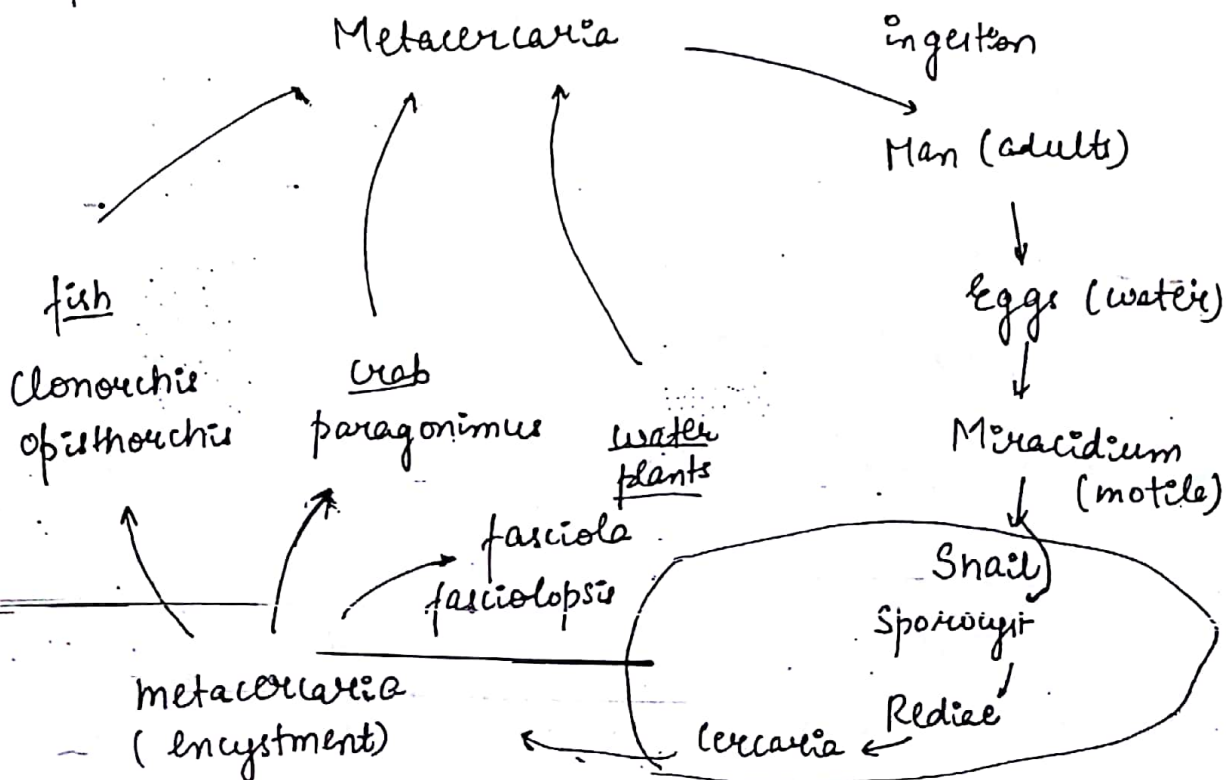 Metacercaria
ingestion
Man (adults)
Eggs (water)
Miracidium
(motile)
Snail
Sporocyst
Rediae
Cercaria
metacercaria
(encystment)
fish
Clonorchis
opisthorchis
crab
paragonimus
water
plants
fasciola
fasciolopsis